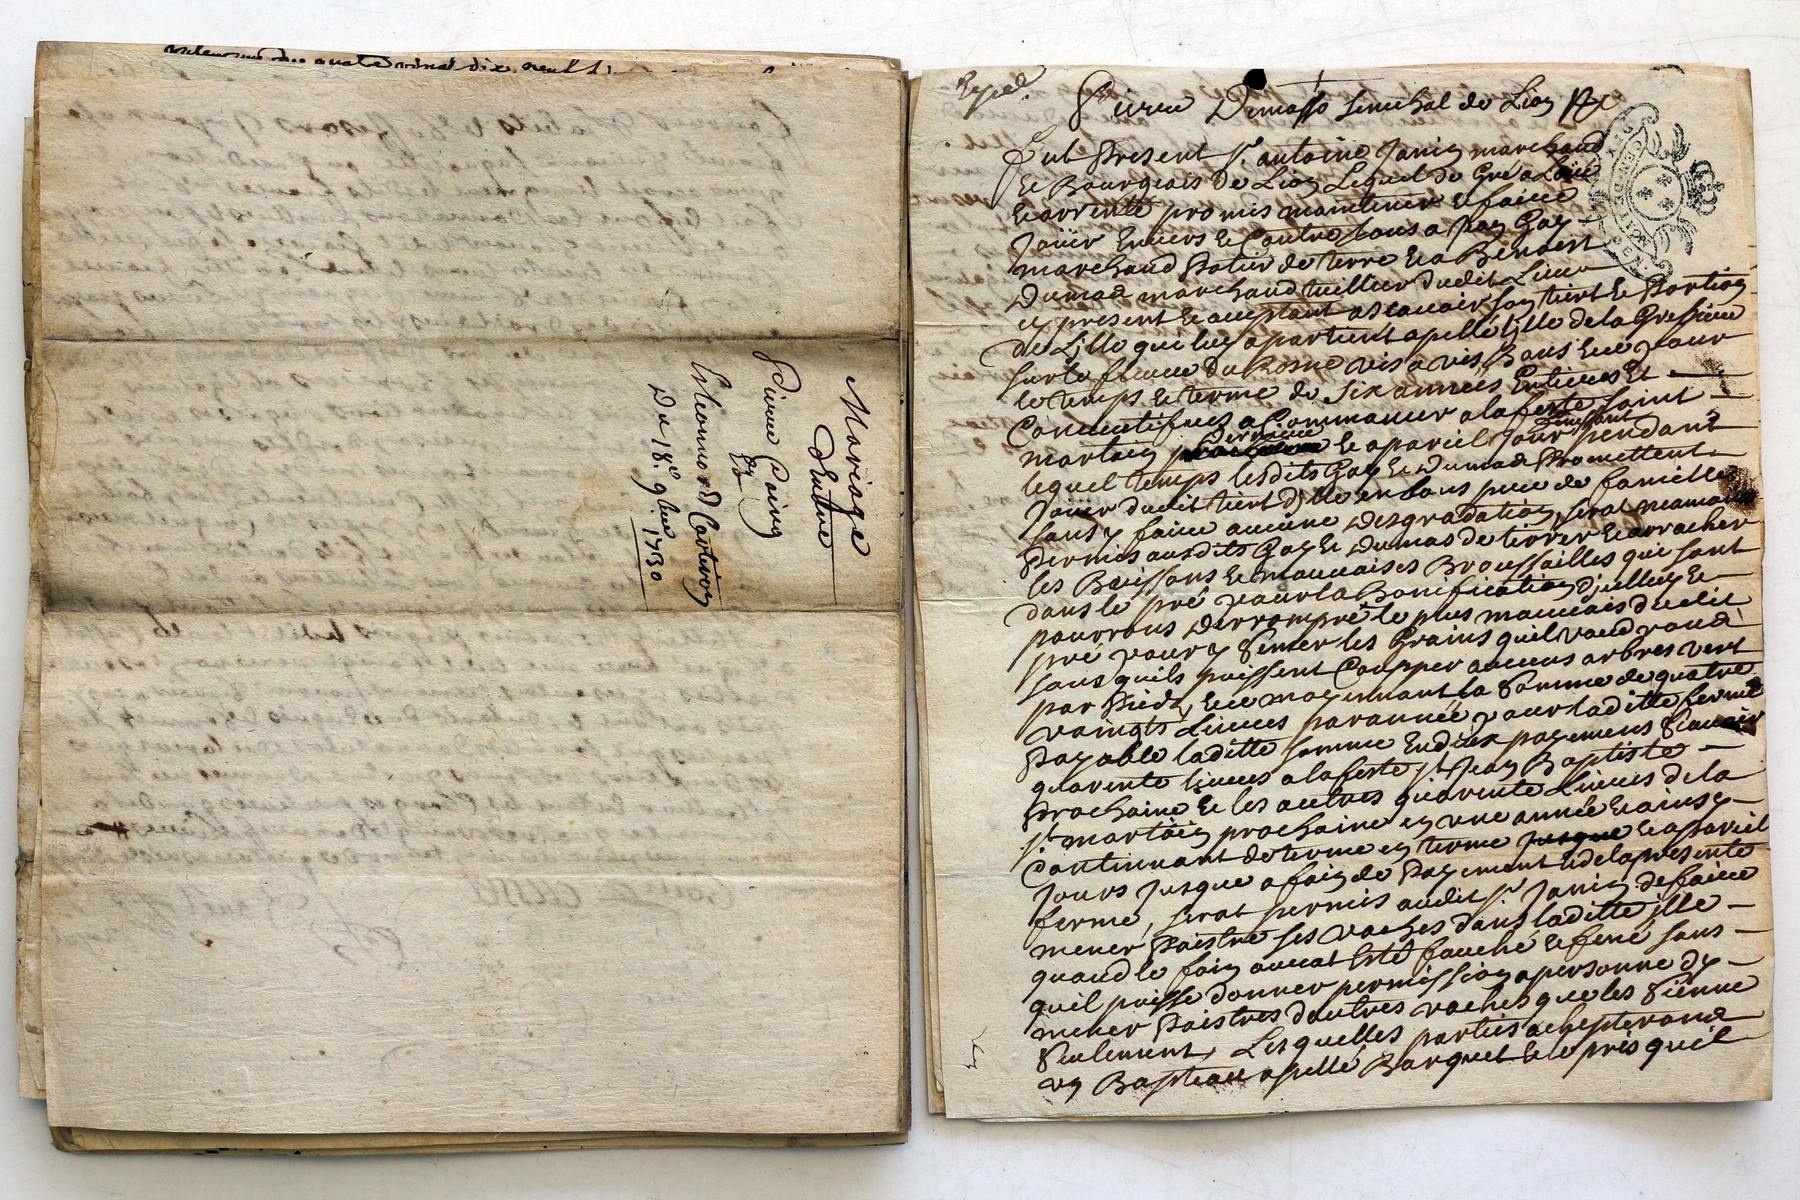 quatre vingt dix neuf
Mariage
Entre
Pierre
Et
Du 18e 9bre 1730
Exped.
Pierre Dumas senechal de Lion
Fut Present Sr. antoine Janin marchand
Et Bourgeois de Lion Lequel de Gré a Loüé
Et arrenté promis maintenir et faire
Joüir Envers Et Contre tous a Gay
marchand Potier de terre Et a Benoist
Dumas marchand tuillier dudit Lieu
icy present Et acceptant ascavoir son tiert Et Portion
de Lille qui luy apartient apellé Lille de la
sur le fleuve du Rosne vis a vis Et ce pour
le temps Et terme de Six années Entieres Et
Consecutives a Commancer a la feste saint
martin derniere Et a pareil Jour finissant pendant
lequel temps lesdits Gay Et Dumas Promettent
Joüir dudit tiert Dille en bons pere de famille
sans y faire aucune desgradation, serat neamoins
Permis ausdits Gay Et Dumas de tirer Et arracher
les Buissons Et mauvaises Broussailles qui sont
dans le pré pour la Bonification dicelluy Et
pourrons derrompre le plus mauvais dudit
pré pour y Semer les Grains quil voudronds
sans quils puissent Coupper aucuns arbres vert
par Pied, Et ce moyennant la Somme de quatre
vaingts Livres par année pour laditte ferme
Payable laditte somme En deux payemens Scavoir
quarente livres a la feste St. Jean Baptiste
Prochaine Et les autres quarente Livres de la
St. martin prochaine en une année Et ainsy
Continuant de terme en terme jusque Et a Pareil
Jours Jusque a fain de Payement Et de la presente
ferme, serat permis audit Sr. Janin de faire
mener Paistre ses vaches dans laditte ille
quand le foin aurat Esté fauché Et fené sans
quil puisse donner permission a personne dy
mener Paistres dautres vaches que les Siënne
Seulement, Lesquelles parties achepteronds
un Bapteau apellé Barquet Et le pris quil